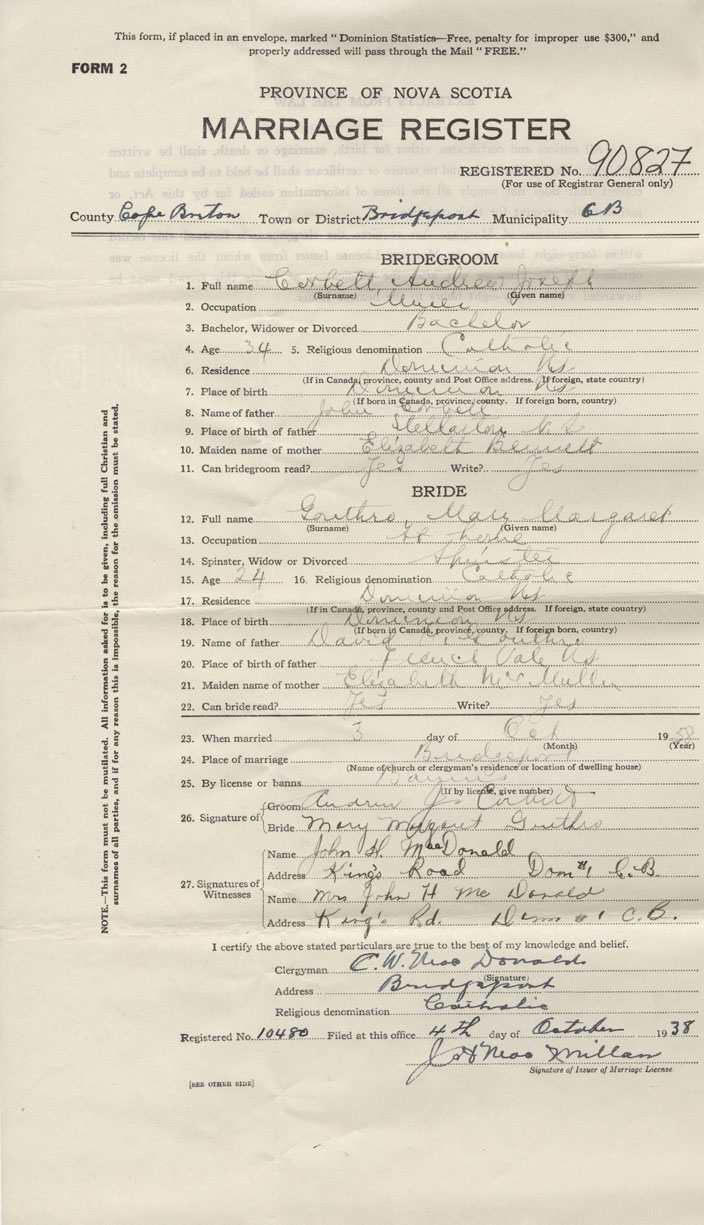 This form, if placed in an envelope, marked "Dominion Statistics—Free, penalty for improper use $300," and
properly addressed will pass through the Mail "FREE."
FORM 2
PROVINCE OF NOVA SCOTIA
MARRIAGE REGISTER
REGISTERED No. 90827
(For use of Registrar General only)
County Cape Breton Town or District Bridgeport Municipality CB
BRIDEGROOM
1. Full name Corbett, Andrew Joseph
(Surname) (Given name)
2. Occupation Miner
3. Bachelor, Widower or Divorced Bachelor
4. Age 34 5. Religious denomination Catholic
6. Residence Dominion NS
(If in Canada, province, county and Post Office address. If foreign, state country)
7. Place of birth Dominion NS
(If born in Canada, province, county. If foreign born, country)
8. Name of father John Corbett
9. Place of birth of father Stellarton N S
10. Maiden name of mother Elizabeth Bennett
11. Can bridegroom read? Yes Write? Yes
BRIDE
12. Full name Gouthro, Mary Margaret
(Surname) (Given name)
13. Occupation At home
14. Spinster, Widow or Divorced Spinster
15. Age 24 16. Religious denomination Catholic
17. Residence Dominion NS
(If in Canada, province, county and Post Office address. If foreign, state country)
18. Place of birth Dominion NS
(If born in Canada, province, county. If foreign born, country)
19. Name of father David Gouthro
20. Place of birth of father French Vale NS
21. Maiden name of mother Elizabeth McMullin
22. Can bride read? Yes Write? Yes
23. When married 3 day of Oct 1938
(Month) (Year)
24. Place of marriage Bridgeport
(Name of church or clergyman's residence or location of dwelling house)
25. By license or banns Banns
(If by license, give number)
26. Signature of
Groom Andrew J. Corbett
Bride Mary Margaret Gouthro
27. Signatures of Witnesses
Name John H. MacDonald
Address King's Road Dom #1 C.B.
Name Mrs John H Mc Donald
Address King's Rd. Dom #1 C.B.
I certify the above stated particulars are true to the best of my knowledge and belief.
Clergyman C. W. MacDonald
(Signature)
Address Bridgeport
Religious denomination Catholic
Registered No. 10480 Filed at this office 4th day of October 1938
MacMillan
Signature of Issuer of Marriage License
[SEE OTHER SIDE]
NOTE.—This form must not be mutilated. All information asked for is to be given, including full Christian and
surnames of all parties, and if for any reason this is impossible, the reason for the omission must be stated.